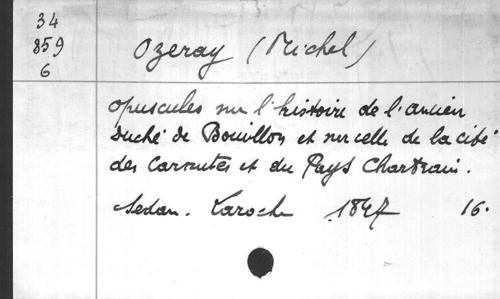 34
859
6
Ozeray (Michel)
opuscules sur l'histoire de l'ancien
duché de Bouillon et sur celle de la cité
des Carnutes et du Pays Chartrain.
Sedan. Laroche 1847 16.